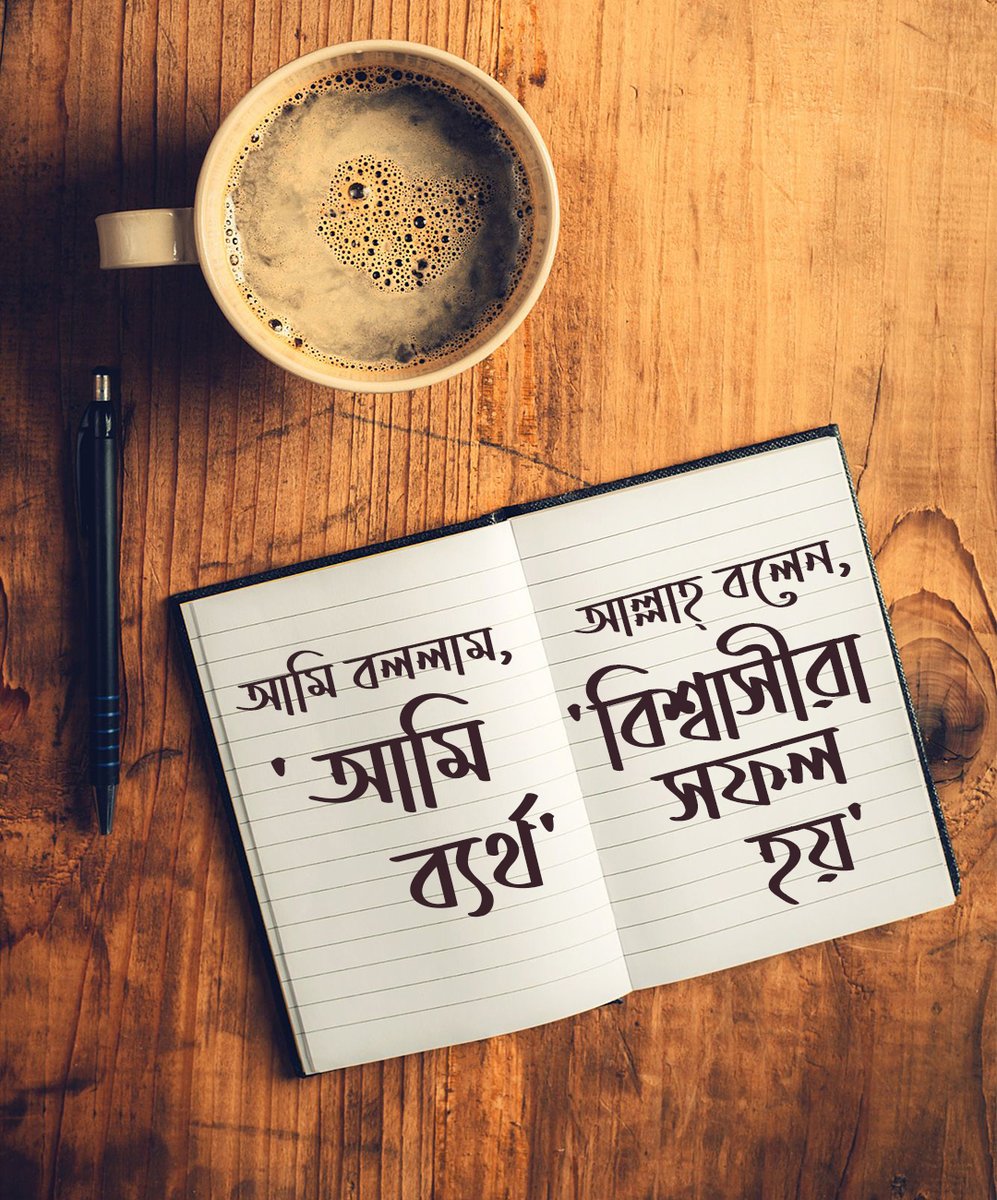 আমি বললাম,
'আমি
ব্যর্থ'
আল্লাহ্ বলেন,
'বিশ্বাসীরা
সফল
হয়'